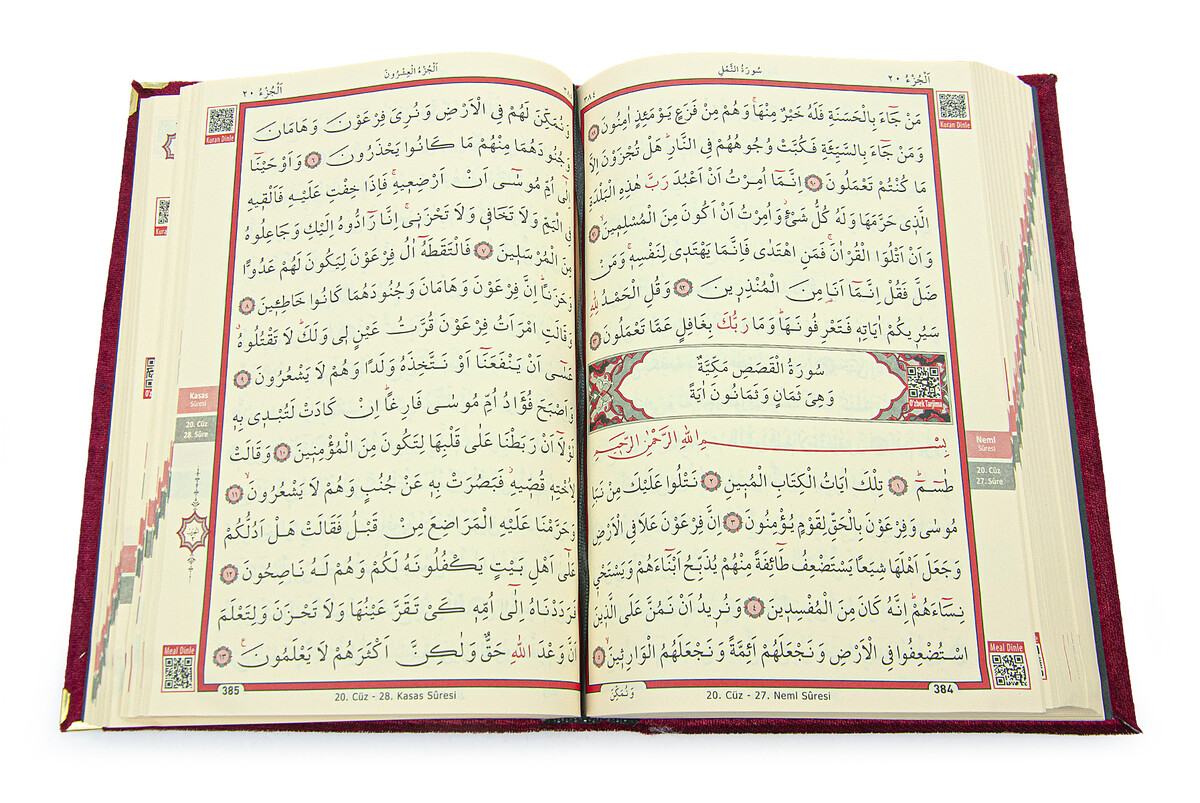 اَلْجُزْءُ ٢٠
سُورَةُ النَّمْلِ
٣٨٤
Kuran Dinle
مَنْ جَٓاءَ بِالْحَسَنَةِ فَلَهُ خَيْرٌ مِنْهَاۚ وَهُمْ مِنْ فَزَعٍ يَوْمَئِذٍ اٰمِنُونَ ٨٩
وَمَنْ جَٓاءَ بِالسَّيِّئَةِ فَكُبَّتْ وُجُوهُهُمْ فِي النَّارِۜ هَلْ تُجْزَوْنَ اِلَّا
مَا كُنْتُمْ تَعْمَلُونَ ٩٠ اِنَّمَٓا اُمِرْتُ اَنْ اَعْبُدَ رَبَّ هٰذِهِ الْبَلْدَةِ
الَّذ۪ي حَرَّمَهَا وَلَهُ كُلُّ شَيْءٍۘ وَاُمِرْتُ اَنْ اَكُونَ مِنَ الْمُسْلِم۪ينَۙ ٩١
وَاَنْ اَتْلُوَا الْقُرْاٰنَۚ فَمَنِ اهْتَدٰى فَاِنَّمَا يَهْتَد۪ي لِنَفْسِه۪ۚ وَمَنْ
ضَلَّ فَقُلْ اِنَّمَٓا اَنَا۬ مِنَ الْمُنْذِر۪ينَ ٩٢ وَقُلِ الْحَمْدُ لِلّٰهِ
سَيُر۪يكُمْ اٰيَاتِه۪ فَتَعْرِفُونَهَاۜ وَمَا رَبُّكَ بِغَافِلٍ عَمَّا تَعْمَلُونَ ٩٣
سُورَةُ الْقَصَصِ مَكِّيَّةٌ
وَهِيَ ثَمَانٍ وَثَمَانُونَ اٰيَةً
O'zbek Tarjima
بِسْمِ اللّٰهِ الرَّحْمٰنِ الرَّح۪يمِ
طٰسٓمٓ ١ تِلْكَ اٰيَاتُ الْكِتَابِ الْمُب۪ينِ ٢ نَتْلُوا عَلَيْكَ مِنْ نَبَأِ
مُوسٰى وَفِرْعَوْنَ بِالْحَقِّ لِقَوْمٍ يُؤْمِنُونَ ٣ اِنَّ فِرْعَوْنَ عَلَا فِي الْاَرْضِ
وَجَعَلَ اَهْلَهَا شِيَعًا يَسْتَضْعِفُ طَٓائِفَةً مِنْهُمْ يُذَبِّحُ اَبْنَٓاءَهُمْ وَيَسْتَحْي۪
نِسَٓاءَهُمْۜ اِنَّهُ كَانَ مِنَ الْمُفْسِد۪ينَ ٤ وَنُر۪يدُ اَنْ نَمُنَّ عَلَى الَّذ۪ينَ
اسْتُضْعِفُوا فِي الْاَرْضِ وَنَجْعَلَهُمْ اَئِمَّةً وَنَجْعَلَهُمُ الْوَارِث۪ينَۙ ٥
Neml
Sûresi
20. Cüz
27. Sûre
Meal Dinle
384
20. Cüz - 27. Neml Sûresi
وَنُمَكِّنَ
اَلْجُزْءُ الْعِشْرُونَ
اَلْجُزْءُ ٢٠
Kuran Dinle
وَنُمَكِّنَ لَهُمْ فِي الْاَرْضِ وَنُرِيَ فِرْعَوْنَ وَهَامَانَ
وَجُنُودَهُمَا مِنْهُمْ مَا كَانُوا يَحْذَرُونَ ٦ وَاَوْحَيْنَٓا
اِلٰٓى اُمِّ مُوسٰٓى اَنْ اَرْضِع۪يهِۚ فَاِذَا خِفْتِ عَلَيْهِ فَاَلْق۪يهِ
فِي الْيَمِّ وَلَا تَخَاف۪ي وَلَا تَحْزَن۪يۚ اِنَّا رَٓادُّوهُ اِلَيْكِ وَجَاعِلُوهُ
مِنَ الْمُرْسَل۪ينَ ٧ فَالْتَقَطَهُٓ اٰلُ فِرْعَوْنَ لِيَكُونَ لَهُمْ عَدُوًّا
وَحَزَنًاۜ اِنَّ فِرْعَوْنَ وَهَامَانَ وَجُنُودَهُمَا كَانُوا خَاطِـ۪ٔينَ ٨
وَقَالَتِ امْرَاَتُ فِرْعَوْنَ قُرَّتُ عَيْنٍ ل۪ي وَلَكَۜ لَا تَقْتُلُوهُۗ
عَسٰٓى اَنْ يَنْفَعَنَٓا اَوْ نَتَّخِذَهُ وَلَدًا وَهُمْ لَا يَشْعُرُونَ ٩
وَاَصْبَحَ فُؤٰادُ اُمِّ مُوسٰى فَارِغًاۜ اِنْ كَادَتْ لَتُبْد۪ي بِه۪
لَوْلَٓا اَنْ رَبَطْنَا عَلٰى قَلْبِهَا لِتَكُونَ مِنَ الْمُؤْمِن۪ينَ ١٠ وَقَالَتْ
لِاُخْتِه۪ قُصّ۪يهِۘ فَبَصُرَتْ بِه۪ عَنْ جُنُبٍ وَهُمْ لَا يَشْعُرُونَۙ ١١
وَحَرَّمْنَا عَلَيْهِ الْمَرَاضِعَ مِنْ قَبْلُ فَقَالَتْ هَلْ اَدُلُّكُمْ
عَلٰٓى اَهْلِ بَيْتٍ يَكْفُلُونَهُ لَكُمْ وَهُمْ لَهُ نَاصِحُونَ ١٢
فَرَدَدْنَاهُ اِلٰٓى اُمِّه۪ كَيْ تَقَرَّ عَيْنُهَا وَلَا تَحْزَنَ وَلِتَعْلَمَ
اَنَّ وَعْدَ اللّٰهِ حَقٌّ وَلٰكِنَّ اَكْثَرَهُمْ لَا يَعْلَمُونَ۟ ١٣
Kasas
Sûresi
20. Cüz
28. Sûre
Meal Dinle
385
20. Cüz - 28. Kasas Sûresi